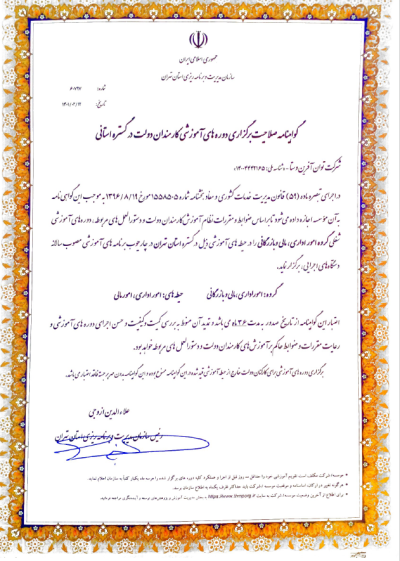 جمهوری اسلامی ایران
سازمان مدیریت و برنامه ریزی استان تهران
شماره:
تاریخ:
گواهینامه صلاحیت برگزاری دوره های آموزشی کارمندان دولت در گستره استانی
شرکت توان آفرین وستا - شناسه ملی:
در اجرای تبصره ماده (۵۹) قانون مدیریت خدمات کشوری و مفاد بخشنامه شماره ۱۵۵۸۵۰۵ مورخ ۱۳۹۶/۸/۱۹ به موجب این گواهی نامه
به آن مؤسسه اجازه داده می شود تا بر اساس ضوابط و مقررات نظام آموزش کارمندان دولت و دستورالعمل های مربوطه، دوره های آموزشی
شغلی گروه امور اداری، مالی و بازرگانی را در حیطه های آموزشی ذیل در گستره استان تهران در چارچوب برنامه های آموزشی مصوب سالانه
دستگاه های اجرایی، برگزار نماید.
گروه: امور اداری، مالی و بازرگانی حیطه های: امور اداری، امور مالی
اعتبار این گواهینامه از تاریخ صدور به مدت ۳۶ ماه می باشد و تمدید آن منوط به بررسی کمیت و کیفیت و حسن اجرای دوره های آموزشی و
رعایت مقررات و ضوابط حاکم بر آموزش های کارمندان دولت و دستورالعمل های مربوطه خواهد بود.
برگزاری دوره های آموزشی برای کارکنان دولت خارج از حیطه آموزشی قید شده در این گواهینامه ممنوع بوده و این گواهینامه بدون مهر برجسته فاقد اعتبار می باشد.
علاءالدین ازوجی
رئیس سازمان مدیریت و برنامه ریزی استان تهران